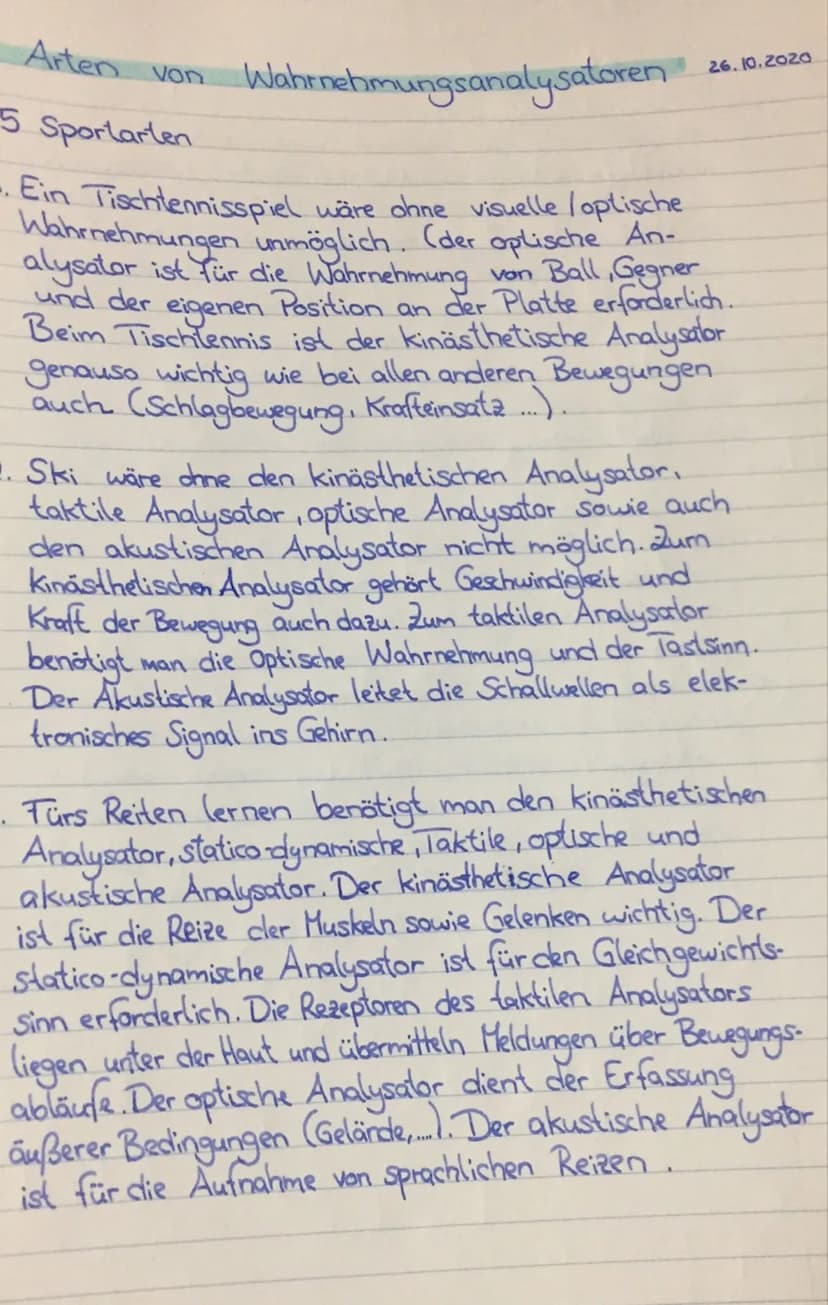 Arten von Wahrnehmungsanalysatoren 26.10.2020
5 Sportarten
. Ein Tischtennisspiel wäre ohne visuelle / optische
Wahrnehmungen unmöglich. (der optische An-
alysator ist für die Wahrnehmung von Ball, Gegner
und der eigenen Position an der Platte erforderlich.
Beim Tischtennis ist der kinästhetische Analysator
genauso wichtig wie bei allen anderen Bewegungen
auch (Schlagbewegung, Krafteinsatz ...).
. Ski wäre ohne den kinästhetischen Analysator,
taktile Analysator, optische Analysator sowie auch
den akustischen Analysator nicht möglich. Zum
kinästhetischen Analysator gehört Geschwindigkeit und
Kraft der Bewegung auch dazu. Zum taktilen Analysator
benötigt man die Optische Wahrnehmung und der Tastsinn.
Der Akustische Analysator leitet die Schallwellen als elek-
tronisches Signal ins Gehirn.
. Fürs Reiten lernen benötigt man den kinästhetischen
Analysator, statico-dynamische, Taktile, optische und
akustische Analysator. Der kinästhetische Analysator
ist für die Reize der Muskeln sowie Gelenken wichtig. Der
statico-dynamische Analysator ist für den Gleichgewichts-
sinn erforderlich. Die Rezeptoren des taktilen Analysators
liegen unter der Haut und übermitteln Meldungen über Bewegungs-
abläufe. Der optische Analysator dient der Erfassung
äußerer Bedingungen (Gelände,....). Der akustische Analysator
ist für die Aufnahme von sprachlichen Reizen.